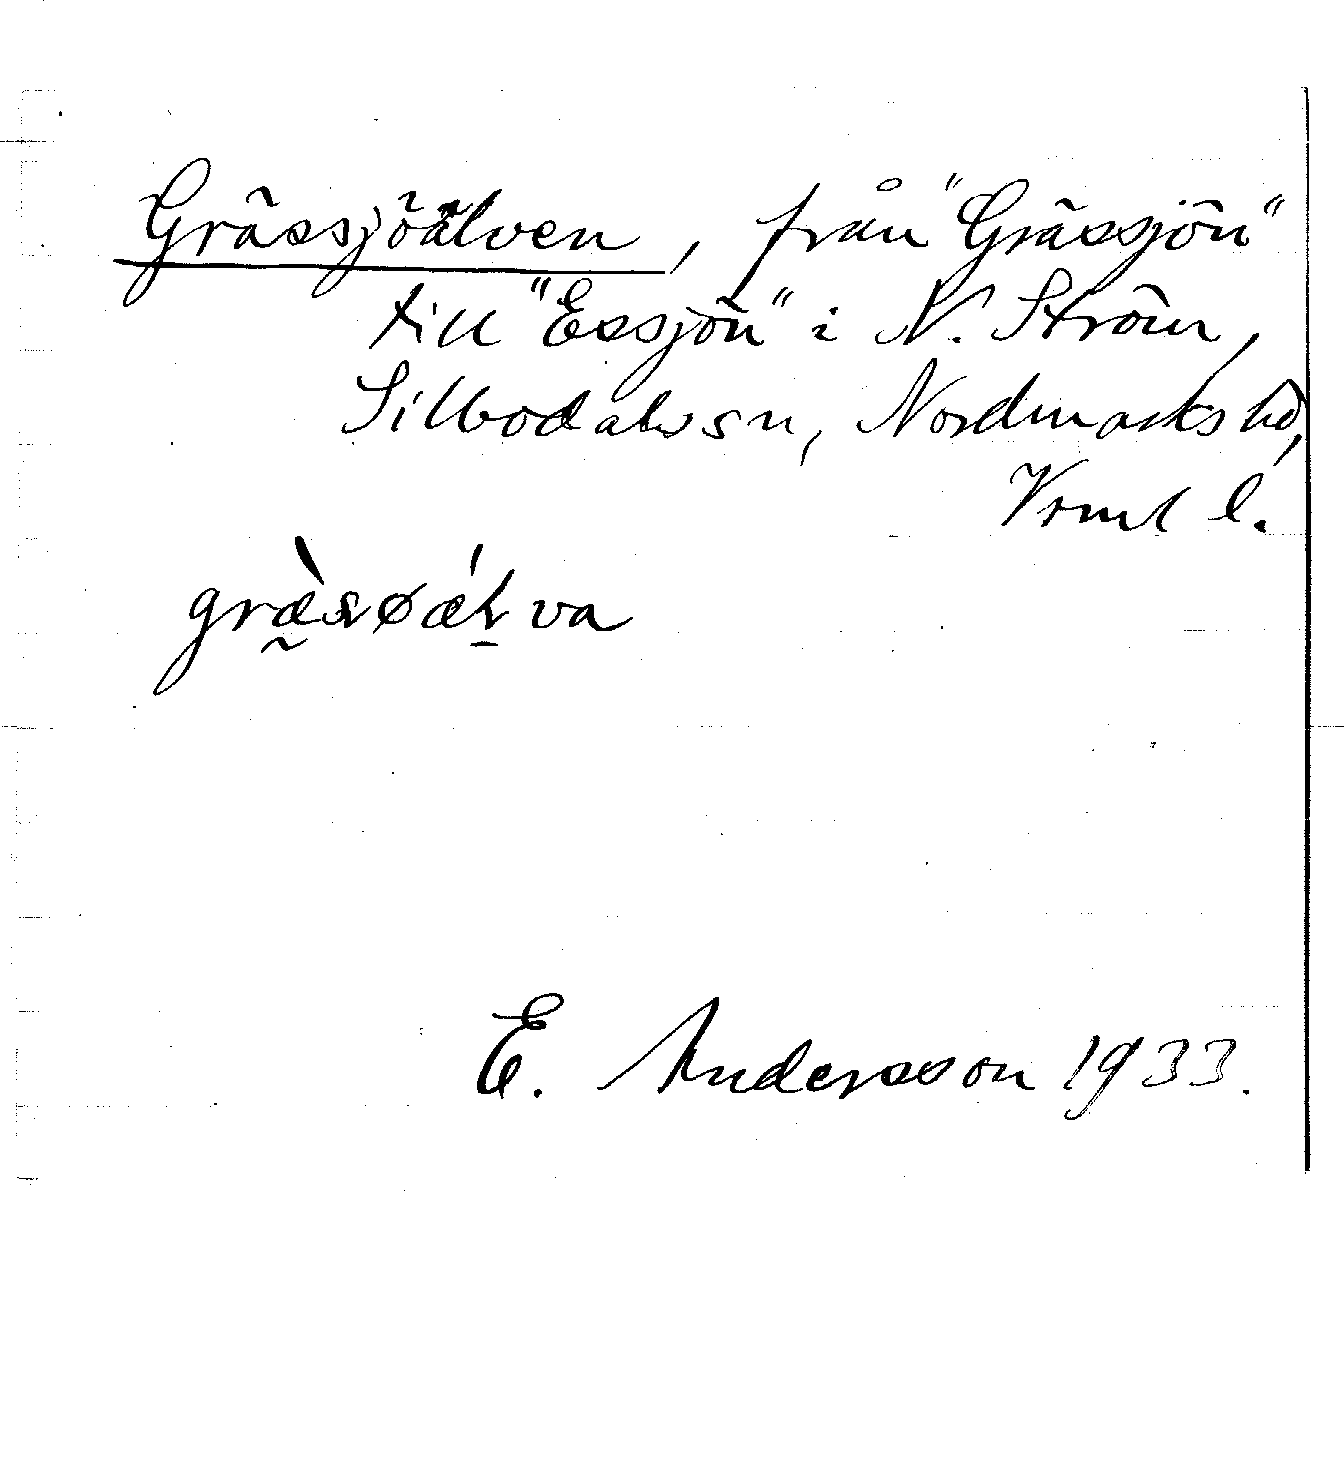 Grässjöälven, från "Grässjön"
till "Essjön" i N. Ström,
Silbodals sn, Nordmarks hd,
Vrml l.
græ̀søǽlva
E. Andersson 1933.